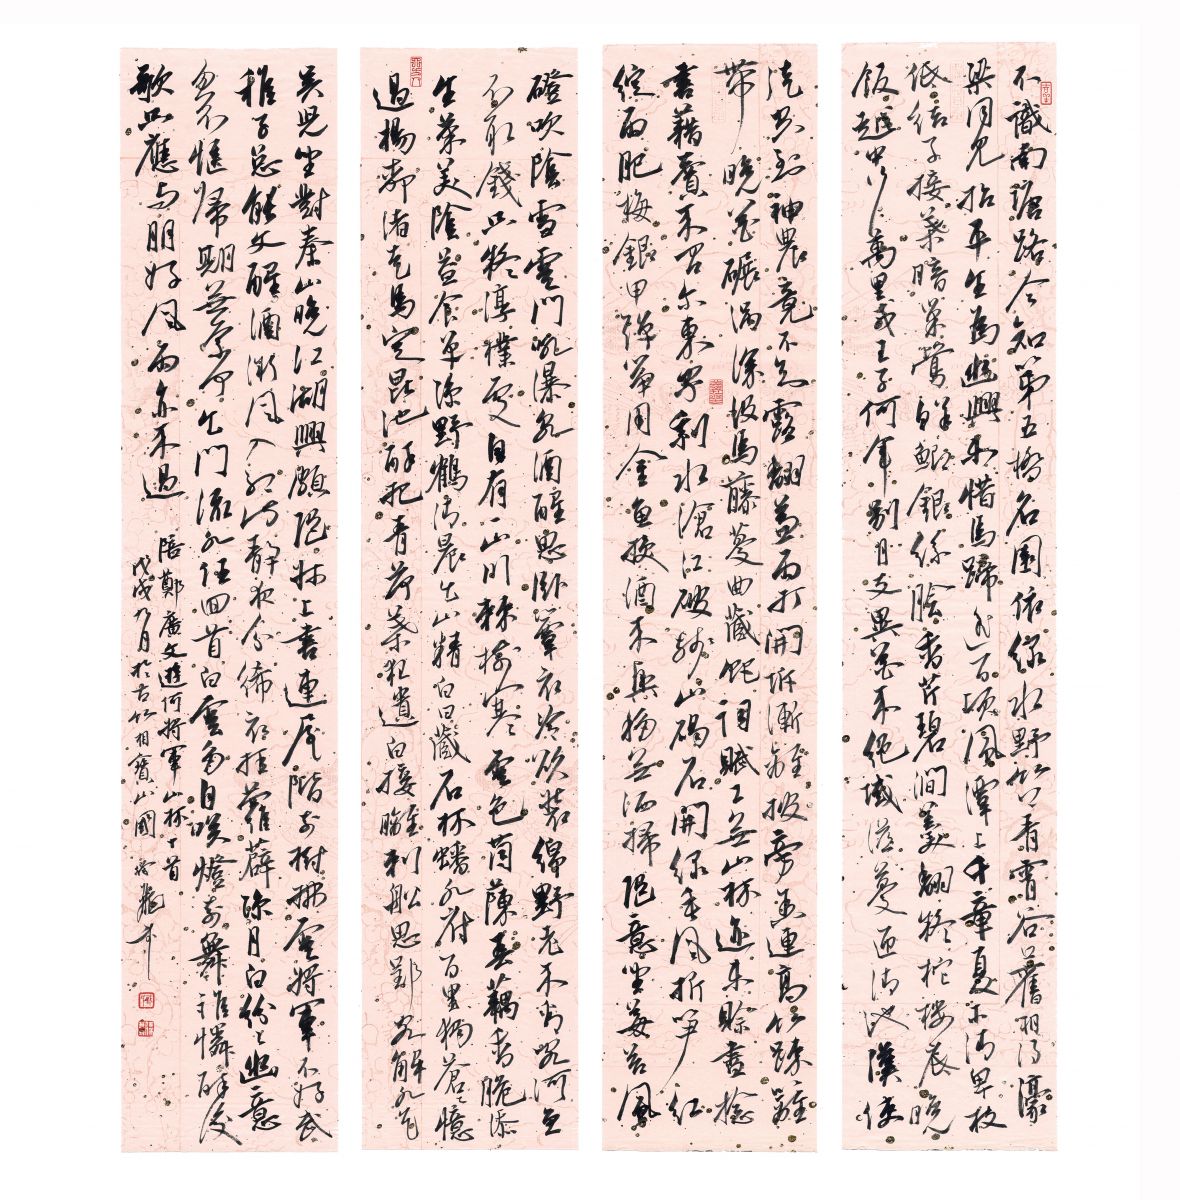 不識南塘路今知第五橋名園依綠水野竹青霄谷口舊相得濠
梁同見招平生為幽興未惜馬蹄遙百頃風潭上千章夏木清卑枝
低結子接葉暗巢鶯鮮鯽銀絲膾香芹碧澗羹翻疑柁樓底晚
飯越中行萬里戎王子何年別月支異花來絕域滋蔓匝清池漢使
徒空到神農竟不知露翻兼雨打開坼漸離披旁舍連高竹疎籬
帶晚花碾渦深沒馬藤蔓曲藏蛇詞賦工無山林迹未賒盡捻
書籍賣來問爾東家剩水滄江破殘山碣石開綠垂風折筍紅
綻雨肥梅銀甲彈箏用金魚換酒來興移無洒掃隨意坐莓苔風
磴吹陰雪雲門吼瀑泉酒醒思臥簟衣冷欲裝綿野老來看客河魚
不取錢只疑淳樸處自有一山川棘樹寒雲色茵陳春藕香脆添
生菜美陰益食單涼野鶴清晨出山精白日藏石林蟠水府百里獨蒼蒼憶
過楊柳渚走馬定昆池醉把青荷葉狂遺白接䍦刺船思郢客解水乞
吳兒坐對秦山晚江湖興頗隨牀上書連屋階前樹拂雲將軍不好武
稚子總能文醒酒微風入聽詩靜夜分絺衣挂蘿薜涼月白紛紛幽意
忽不愜歸期無奈何出門流水住回首白雲多自笑燈前舞誰憐醉後
歌只應与朋好風雨亦來過
陪鄭廣文遊何將軍山林十首
戊戌九月於古竹相寶山國